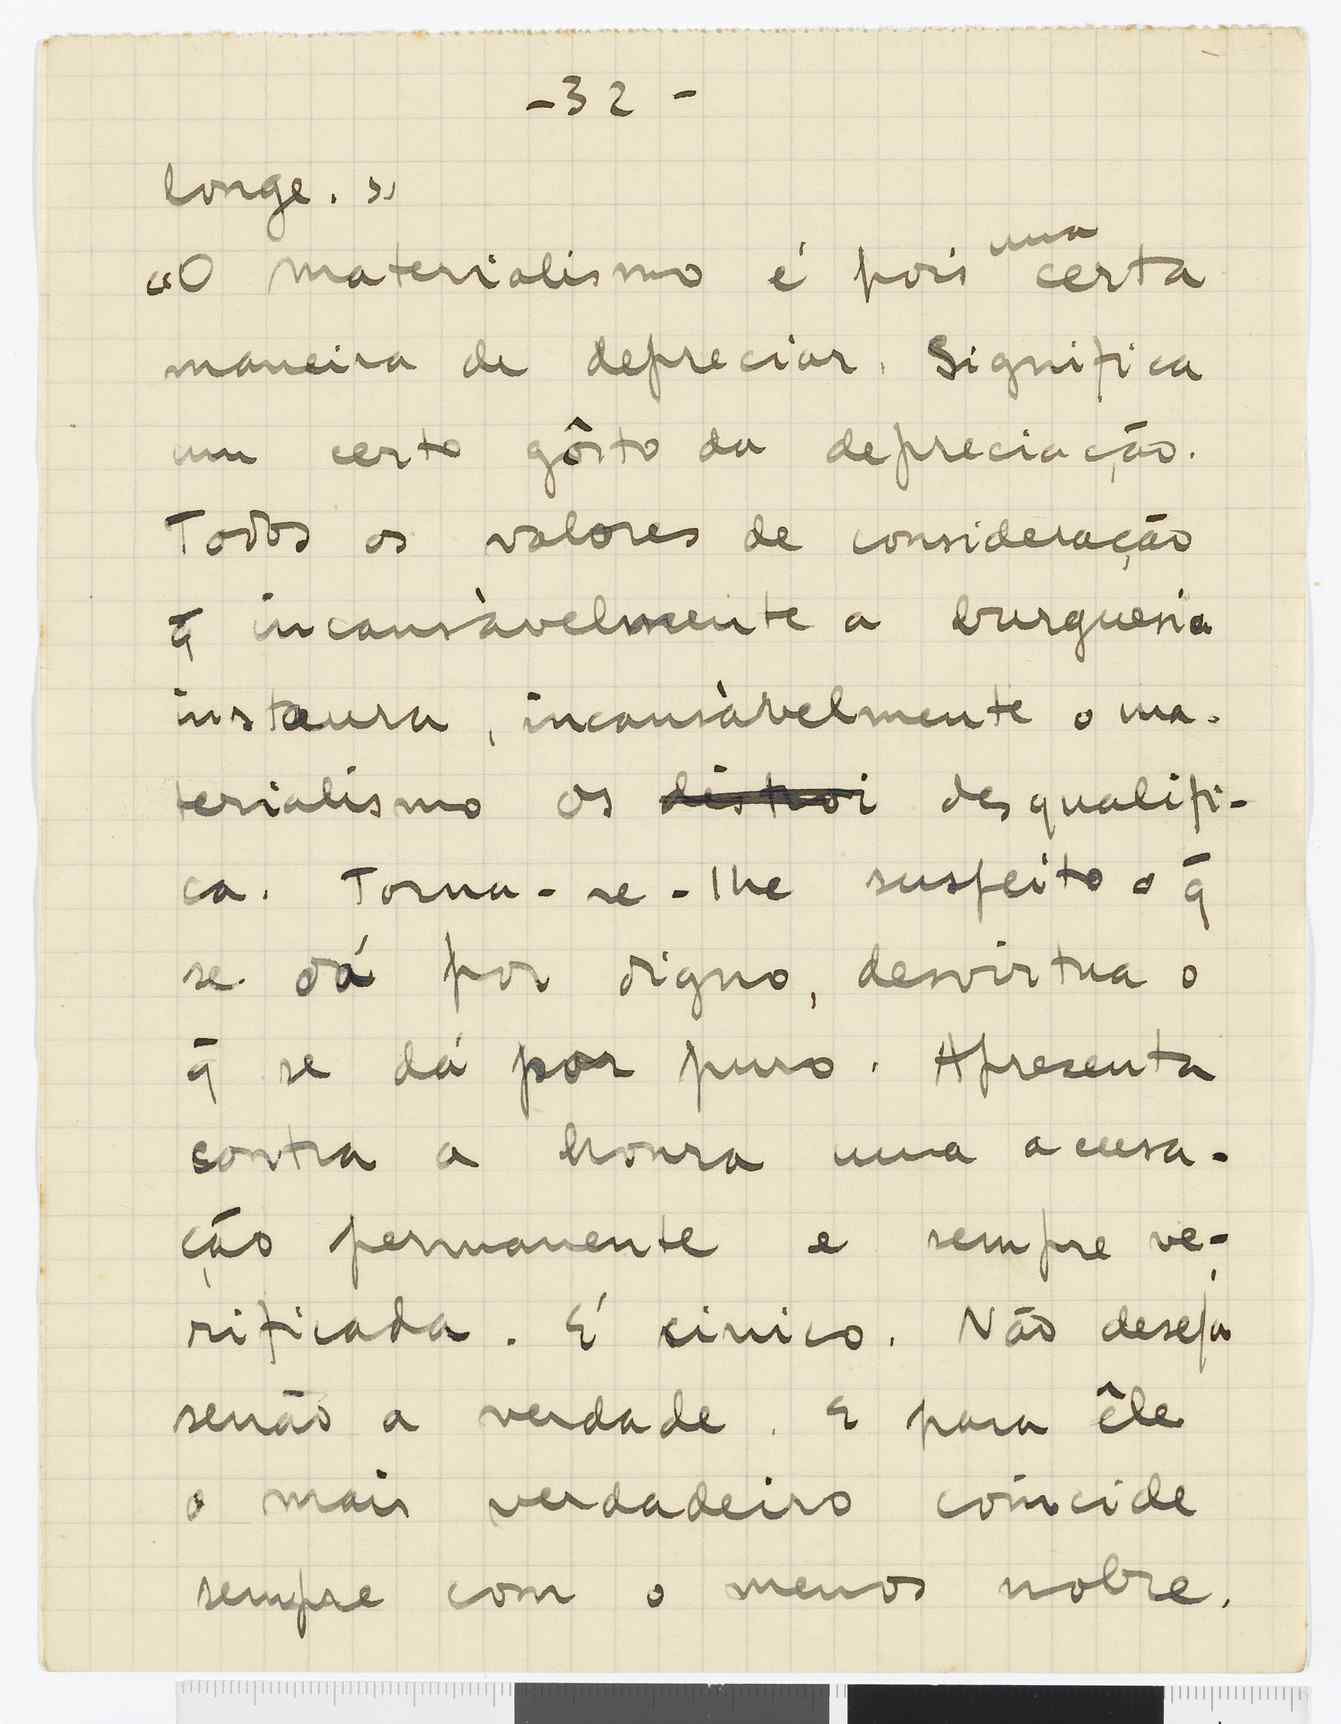 - 32 -
longe. »
«O materialismo é pois uma certa
maneira de depreciar. Significa
um certo gôsto da depreciação.
Todos os valores de consideração
q̄ incansàvelmente a burguesia
instaura, incansàvelmente o ma-
terialismo os distroi desqualifi-
ca. Torna-se-lhe suspeito o q̄
se dá por digno, desvirtua o
q̄ se dá por puro. Apresenta
contra a honra uma acusa-
ção permanente e sempre ve-
rificada. É cinico. Não deseja
senão a verdade. E para êle
o mais verdadeiro coincide
sempre com o menos nobre.